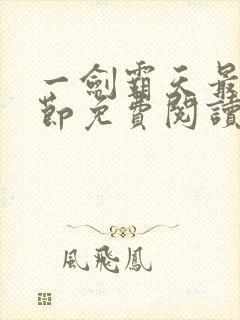 一劍霸天最
節免費閱讀
風飛鳳